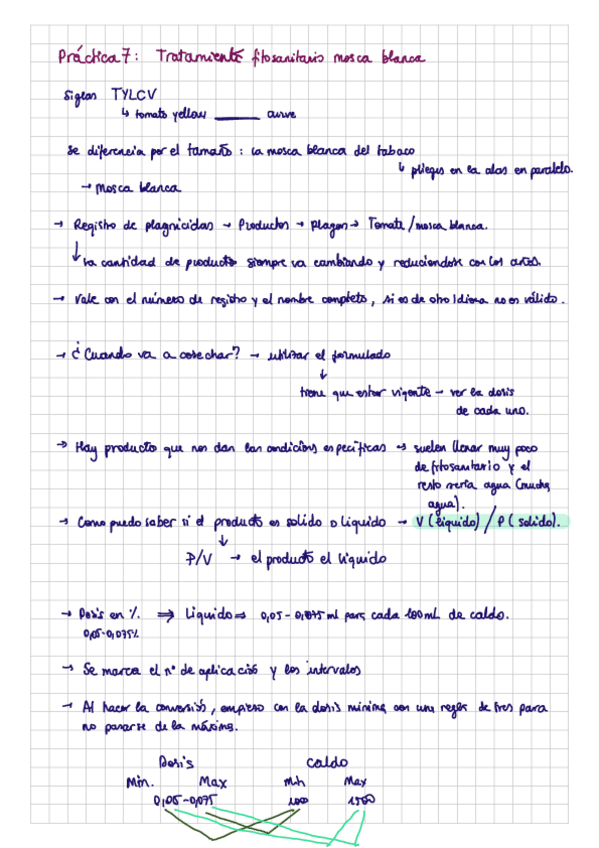 Práctica 7: Tratamiento fitosanitario mosca blanca
Siglas TYLCV
↳ tomato yellow ______ curve
Se diferencia por el tamaño: la mosca blanca del tabaco
↳ pliegues en la alas en paralelo.
→ Mosca blanca
→ Registro de plagnicidas → Productos → Plagas → Tomate/mosca blanca.
↳ la cantidad de producto siempre va cambiando y reduciendose con los años.
→ Vale con el número de registro y el nombre completo, si es de otro Idioma no es válido.
→ ¿Cuando va a cosechar? → utilizar el formulado
↓
tiene que estar vigente → ver la dosis
de cada uno.
→ Hay producto que nos dan las condicións específicas → suelen llevar muy poco
de fitosanitario y el
resto sería agua (mucha
agua).
→ Como puedo saber si el producto es solido o liquido → V (líquido) / P (solido).
↓
P/V → el producto el líquido
→ Dosis en %. ⇒ Liquido ⇒ 0,05 - 0,075 ml para cada 100mL de caldo.
0,05-0,075%
→ Se marca el nº de aplicació y los intervalos
→ Al hacer la conversió, empiezo con la dosis minima con una regla de tres para
no pasarse de la máxima.
Dosis caldo
Min. Max Min Max
0,05-0,075 1000 1500